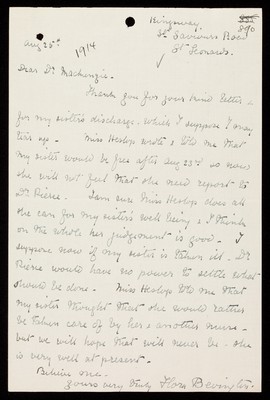 Kingsway.
390
St Saviours Road
St Leonards.
Aug 26th 1914
Dear Dr Mackenzie.
Thank you for your kind letter &
for my sisters discharge. which I suppose I may
Miss Heslop wrote & told me that
my sister would be free after Aug 23rd so now
she will not feel that she need report to
Dr Pierce. I am sure Miss Heslop does all
she can for my sisters well being & I think
on the whole her judgement is good. I
suppose now if my sister is taken ill. Dr
Pierce would have no power to settle what
should be done. Miss Heslop told me that
my sister thought that she would rather
be taken care of by her & another nurse.
but we will hope that will never be. she
is very well at present.
Believe me.
yours very truly Flora Bevington.